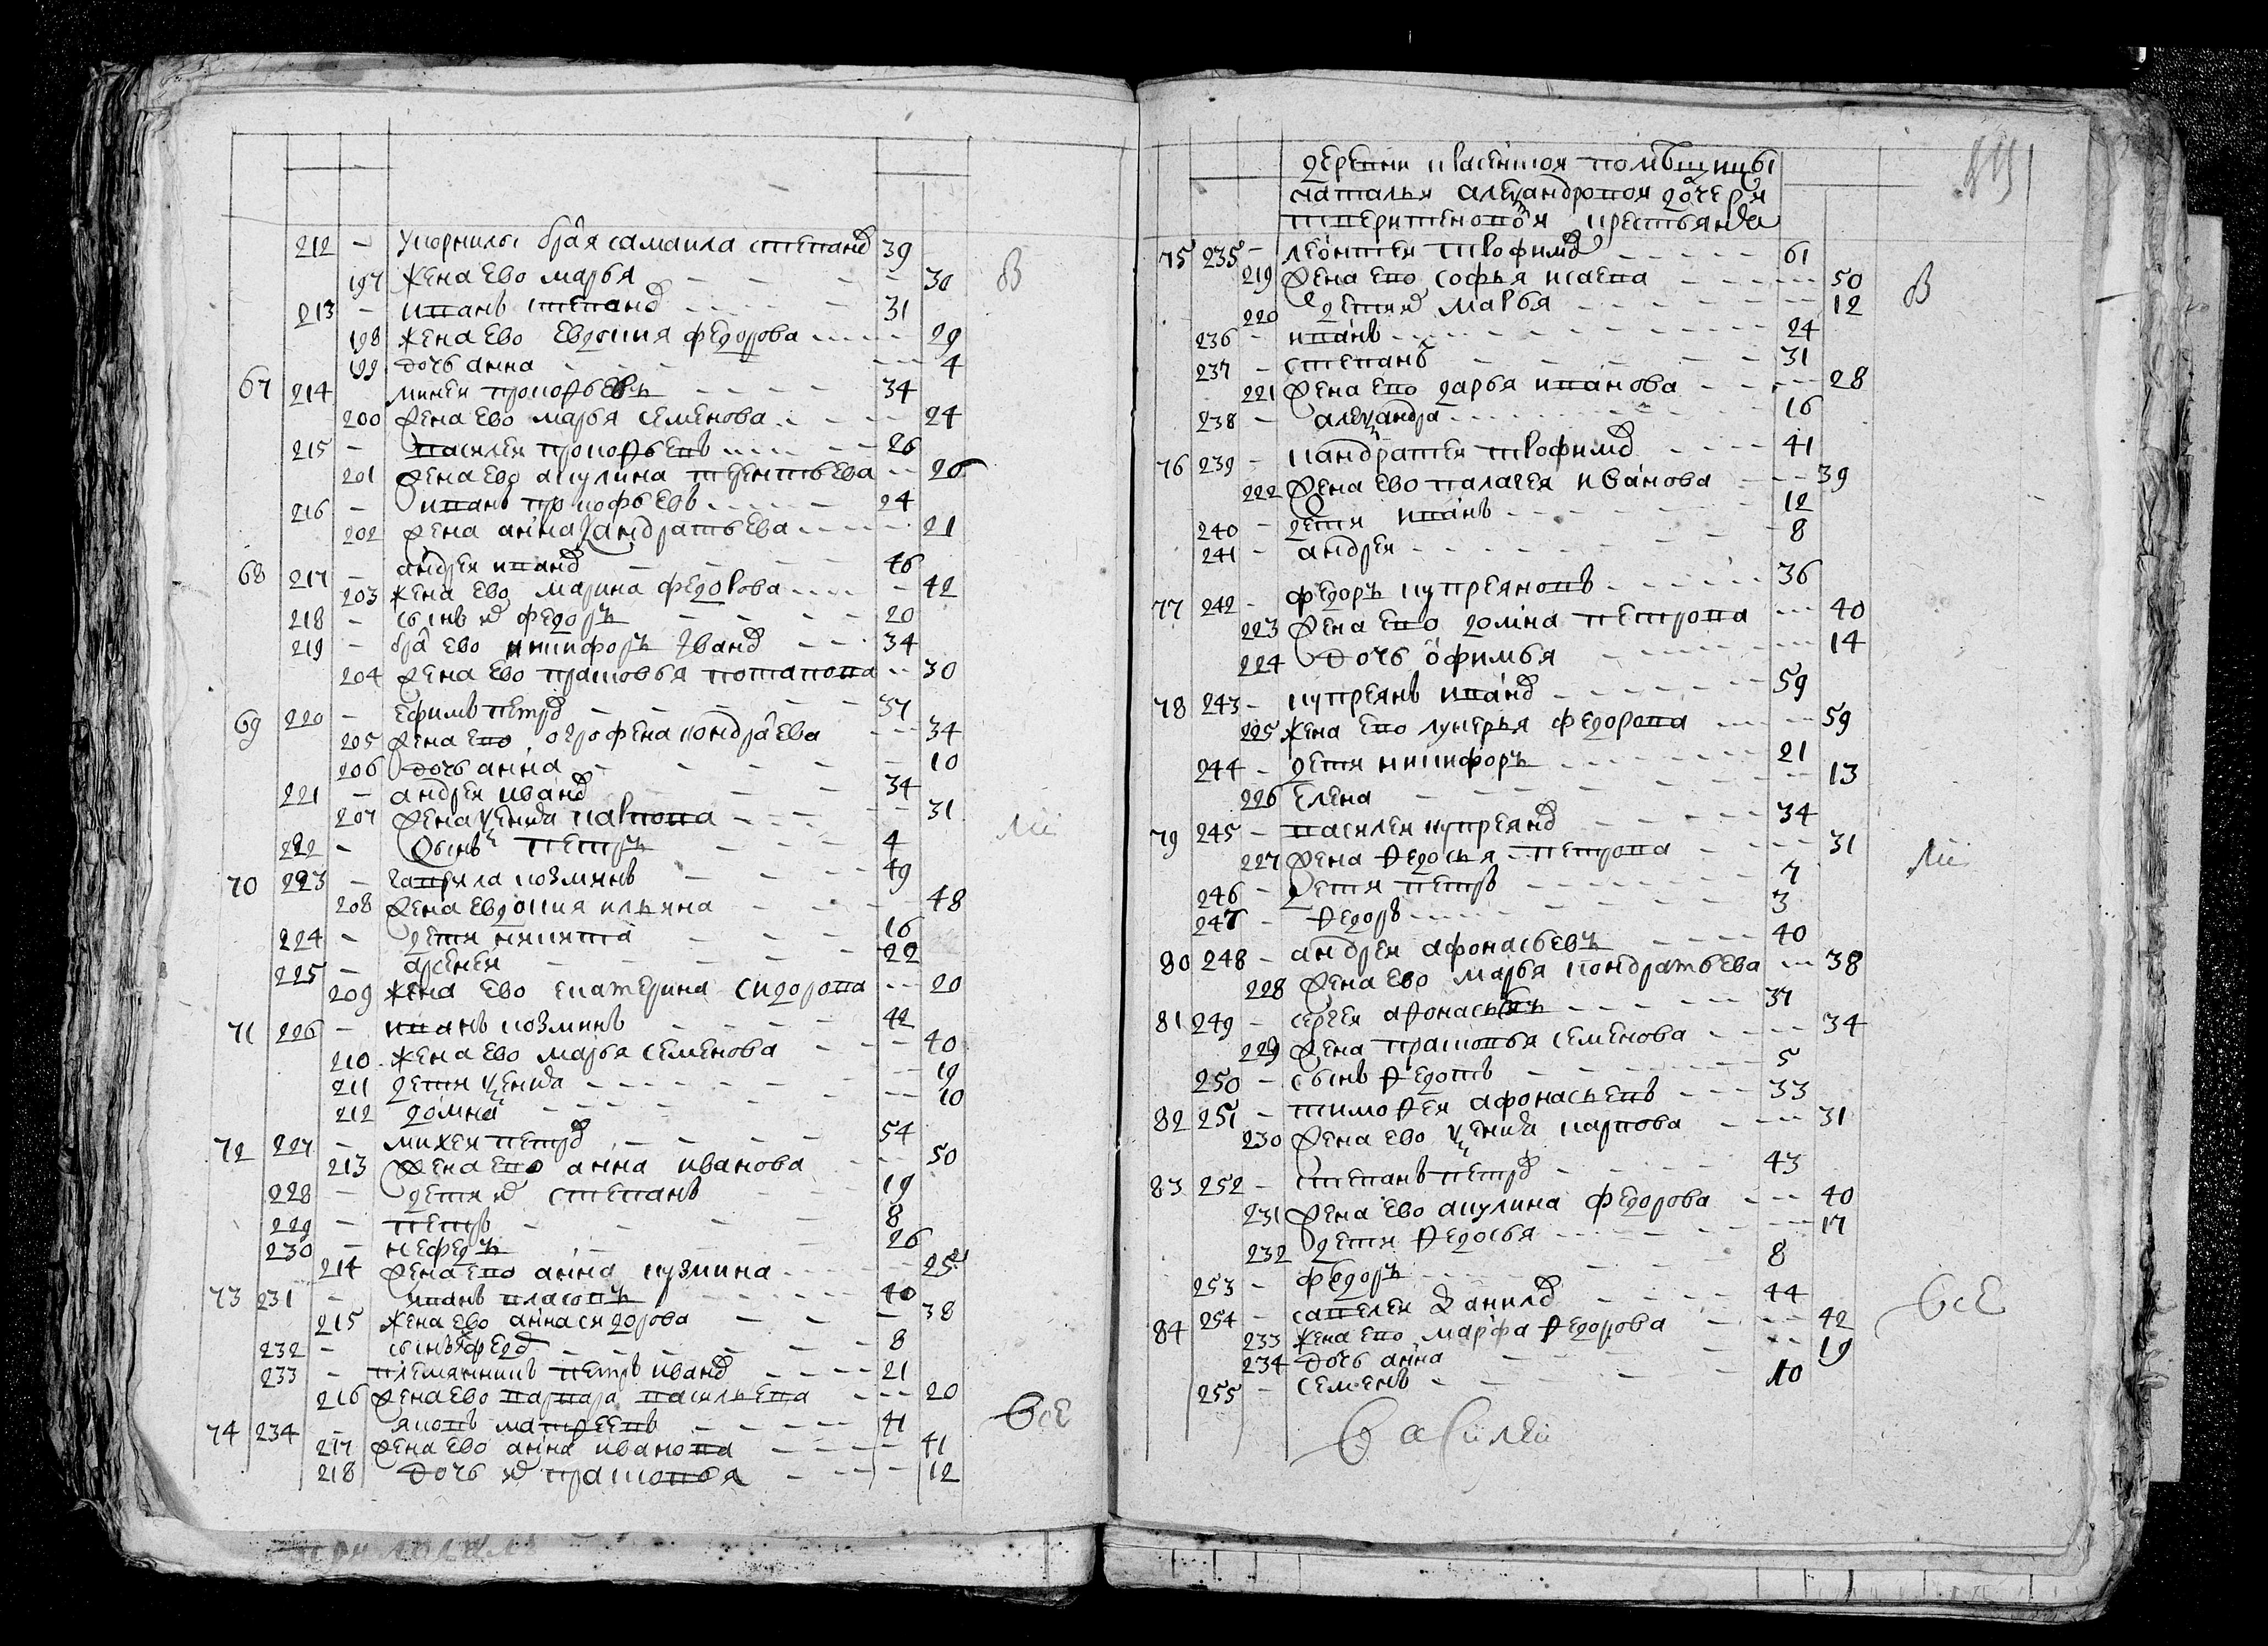 212 - У корнилы братья самаила степанов 39
197 жена ево марья - - - 30
213 - иванъ степанов - - - 31
198 жена ево евдокия федорова - - - 29
199 дочь анна - - - 4
67 214 михеи прокофьевъ - - - 34
200 жена ево марья семенова - - - 24
215 - василеи прокофьевъ - - - 26
201 жена ево акулина терентьева - - 20
216 - иванъ прокофьевъ - - - 24
202 жена анна кандратьева - - - 21
68 217 - андреи иванов - - - 46
203 жена ево марина федорова - - - 42
218 - сынъ их федоръ - - - 20
219 - брат ево никифоръ иванов - - - 34
204 жена ево прасковья потапова - - 30
69 220 - ефимъ петров - - - 37
205 жена ево огрофена кондратева - - - 34
206 дочь анна - - - 10
221 - андреи иванов - - - 34
207 жена ксенья карпова - - - 31
222 - сынъ петръ - - - 4
70 223 - гаврила козминъ - - - 49
208 жена евдокия ильина - - - 48
224 - дети никита - - - 16
225 - арсенеи - - - 22
209 жена ево екатерина сидорова - - 20
71 226 - иванъ козминъ - - - 42
210 жена ево марья семенова - - - 40
211 дети ксенья - - - 19
212 домна - - - 10
72 227 - михеи петров - - - 54
213 жена ево анна иванова - - - 50
228 - дети их степанъ - - - 19
229 - петръ - - - 8
230 - нефедъ - - - 26
214 жена ево анна кузмина - - - 25
73 231 - иванъ власовъ - - - 40
215 жена ево анна сидорова - - - 38
232 - сынъ - - - 8
233 - племянникъ петръ иванов - - - 21
216 жена ево варвара васильева - - - 20
74 234 - яковъ матвеевъ - - - 41
217 жена ево анна иванова - - - 41
218 дочь их прасковья - - - 12
В
все
деревни помѣщицы
натальи александровои дочери
крестьяня
75 235 - леонтеи трофимов - - - 61
219 жена ево софья исаева - - - 50
220 дети их марья - - - 12
236 - иванъ - - - 24
237 - степанъ - - - 31
221 жена ево дарья иванова - - - 28
238 - александра - - - 16
76 239 - кандратеи трофимов - - - 41
222 жена ево палагея иванова - - - 39
240 - дети иванъ - - - 12
241 - андреи - - - 8
77 242 - федоръ купреяновъ - - - 36
223 жена ево домна петрова - - - 40
224 дочь офимья - - - 14
78 243 - купреянъ иванов - - - 59
225 жена ево лукерья федорова - - - 59
244 - дети никифоръ - - - 21
226 елена - - - 13
79 245 - василеи купреянов - - - 34
227 жена федосья петрова - - - 31
246 - дети петръ - - - 7
247 - федоръ - - - 3
80 248 - андреи афонасьевъ - - - 40
228 жена ево марья кондратьева - - - 38
81 249 - сергеи афонасьевъ - - - 37
229 жена прасковья семенова - - - 34
250 - сынъ федотъ - - - 5
82 251 - тимофеи афонасьевъ - - - 33
230 жена ево ксенья карпова - - - 31
83 252 - степанъ петров - - - 43
231 жена ево акулина федорова - - - 40
232 дети федосья - - - 17
253 - федоръ - - - 8
84 254 - савелеи данилов - - - 44
233 жена ево марфа федорова - - - 42
234 дочь анна - - - 19
255 - семенъ - - - 10
В
все
василеи